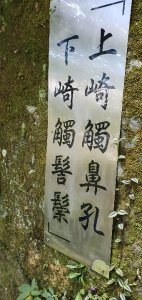 「上崎觸鼻孔
下崎觸髻鬃」